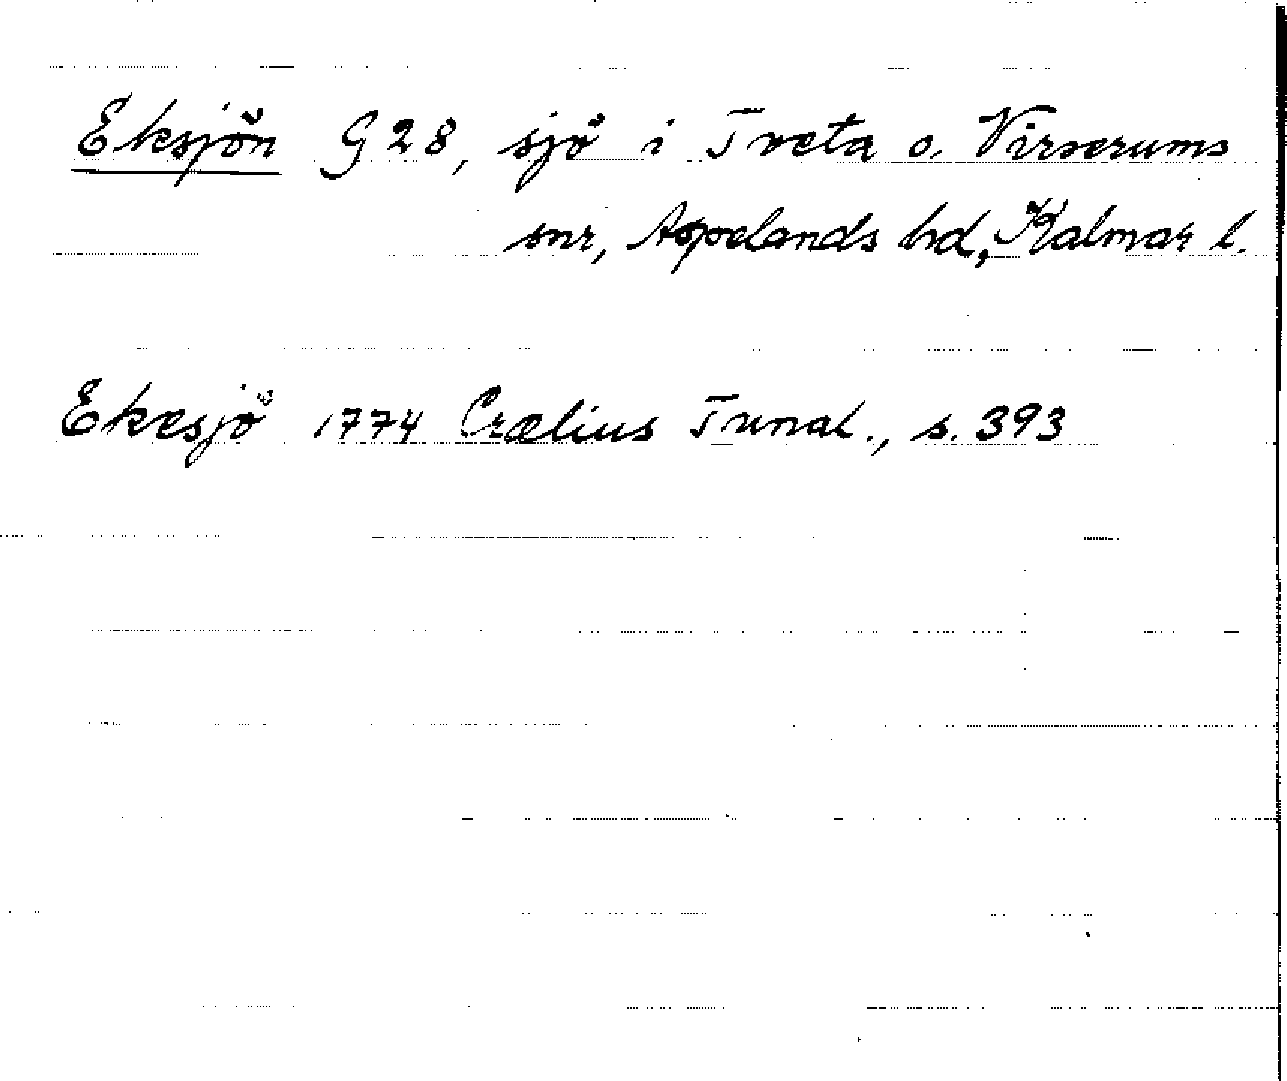 Eksjön G 28, sjö i Tveta o. Virserums
snr, Aspelands hd, Kalmar l.
Ekesjö 1774 Crælius Tunal., s. 393